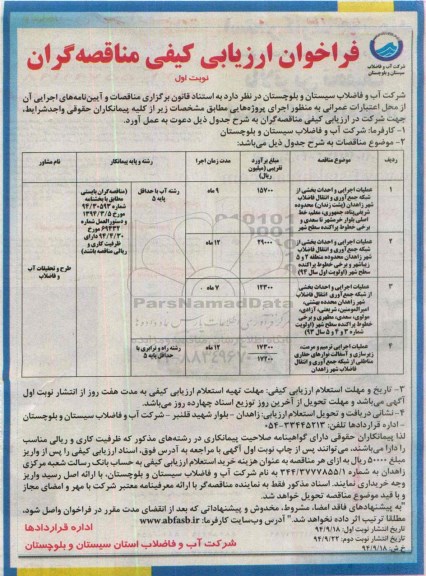 فراخوان ارزیابی کیفی مناقصه‌گران
نوبت اول
شرکت آب و فاضلاب
سیستان و بلوچستان
شرکت آب و فاضلاب سیستان و بلوچستان در نظر دارد به استناد قانون برگزاری مناقصات و آیین‌نامه‌های اجرایی آن
از محل اعتبارات عمرانی به منظور اجرای پروژه‌هایی مطابق مشخصات زیر از کلیه پیمانکاران حقوقی واجدشرایط،
جهت شرکت در ارزیابی کیفی مناقصه‌گران به شرح جدول ذیل دعوت به عمل آورد.
۱- کارفرما: شرکت آب و فاضلاب سیستان و بلوچستان
۲- موضوع مناقصات به شرح جدول ذیل می‌باشد:
ردیف
موضوع مناقصه
مبلغ برآورد تقریبی (میلیون ریال)
مدت زمان اجرا
رشته و پایه پیمانکار
نام مشاور
۱
عملیات اجرایی و احداث بخشی از
شبکه جمع‌آوری و انتقال فاضلاب
شهر زاهدان (پشت زندان) محدوده
شریفی‌پناه، جمهوری، معلم، خط
اصلی بلوار خرمشهر تا سعدی و
برخی خطوط پراکنده سطح شهر
۱۵۷۰۰
۹ ماه
رشته آب با حداقل
پایه ۵
(مناقصه‌گران بایستی
مطابق با بخشنامه
شماره ۹۴/۳۰۵۹۳
مورخ ۱۳۹۴/۳/۵
و دستورالعمل شماره
۶۹۳۳۲ مورخ
۹۴/۴/۳۰ دارای
ظرفیت کاری و
ریالی مناقصه باشند)
طرح و تحقیقات آب
و فاضلاب
۲
عملیات اجرایی و احداث بخشی از
شبکه جمع‌آوری و انتقال فاضلاب
شهر زاهدان محدوده منطقه ۲ و ۵
زیباشهر و برخی خطوط پراکنده
سطح شهر (اولویت اول سال ۹۴)
۲۹۰۰۰
۱۲ ماه
۳
عملیات اجرایی و احداث بخشی
از شبکه جمع‌آوری انتقال فاضلاب
شهر زاهدان محدده بهشتی،
امیرالمومنین، شریعتی، آزادی،
مولوی، سعدی، مطهری و برخی
خطوط پراکنده سطح شهر (اولویت
شماره ۳ و ۴ و ۵ سال ۹۳)
۱۲۳۰۰
۷ ماه
۴
عملیات اجرایی ترمیم و مرمت،
زیرسازی و آسفالت نوارهای حفاری
مناطقی از شبکه جمع‌آوری و انتقال
فاضلاب شهر زاهدان
۱۷۳۰۰
۱۷۲۰۰
۱۲ ماه
رشته راه و ترابری با
حداقل پایه ۵
ParsNamadData
۳- تاریخ و مهلت استعلام ارزیابی کیفی: مهلت تهیه استعلام ارزیابی کیفی به مدت هفت روز از انتشار نوبت اول
آگهی می‌باشد و مهلت تحویل از آخرین روز توزیع اسناد چهارده روز می‌باشد.
۴- نشانی دریافت و تحویل استعلام ارزیابی: زاهدان - بلوار شهید قلنبر - شرکت آب و فاضلاب سیستان و بلوچستان
- اداره قراردادها تلفن: ۳۳۴۴۵۲۱۳-۰۵۴
لذا پیمانکاران حقوقی دارای گواهینامه صلاحیت پیمانکاری در رشته‌های مذکور که ظرفیت کاری و ریالی مناسب
را دارا می‌باشند، می‌توانند پس از چاپ نوبت اول آگهی با مراجعه به آدرس فوق، اسناد ارزیابی کیفی را پس از واریز
مبلغ ۵۰۰۰۰۰ ریال به ازای هر مناقصه به عنوان هزینه خرید استعلام ارزیابی کیفی به حساب بانک رسالت شعبه مرکزی
زاهدان به شماره ۳۴۴/۳۷۷۷۸۵۵/۱ به نام شرکت آب و فاضلاب سیستان و بلوچستان، با ارائه اصل رسید واریز
وجه خریداری نمایند. اسناد مذکور فقط به نماینده مناقصه‌گر با ارائه معرفینامه معتبر شرکت با مهر و امضای مجاز
و با قید موضوع مناقصه تحویل خواهد شد.
*به پیشنهادهای فاقد امضا، مشروط، مخدوش و پیشنهاداتی که بعد از انقضای مدت مقرر در فراخوان واصل شود،
مطلقا ترتیب اثر داده نخواهد شد.* آدرس وب‌سایت کارفرما: www.abfasb.ir
تاریخ انتشار نوبت اول: ۹۴/۹/۱۸
تاریخ انتشار نوبت دوم: ۹۴/۹/۲۲
خ ش: ۹۴/۹/۱۸
اداره قراردادها
شرکت آب و فاضلاب استان سیستان و بلوچستان